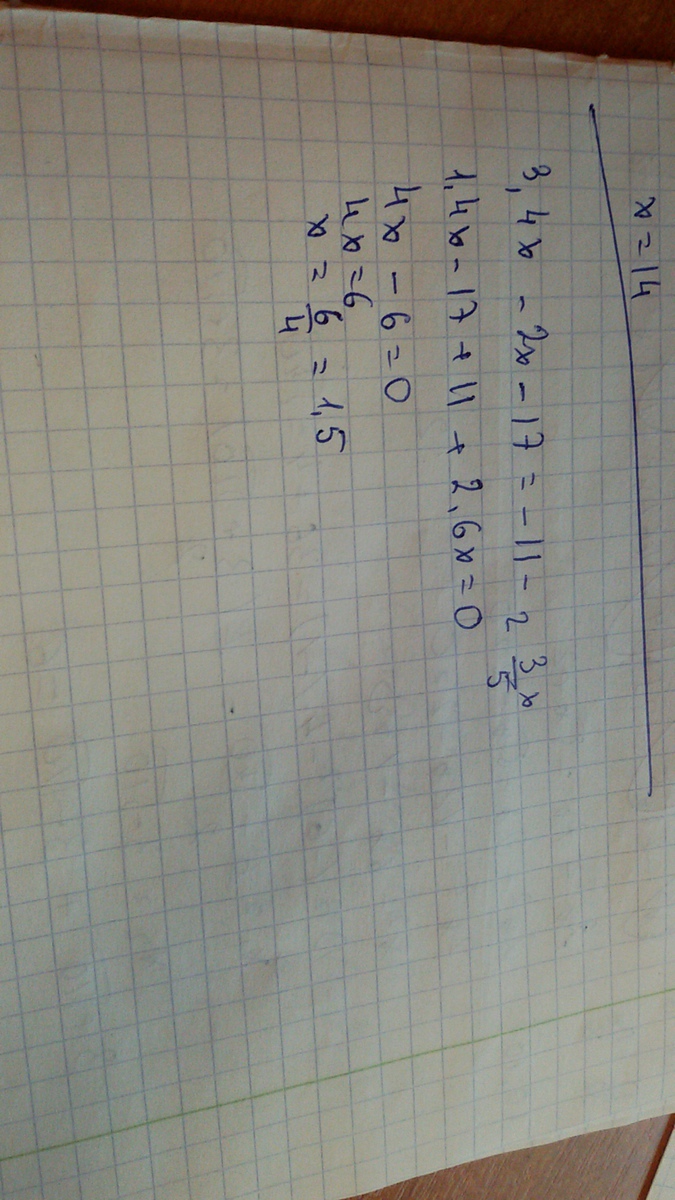 x = 14
3,4x - 2x - 17 = - 11 - 2 3/5 x
1,4x - 17 + 11 + 2,6x = 0
4x - 6 = 0
4x = 6
x = 6/4 = 1,5